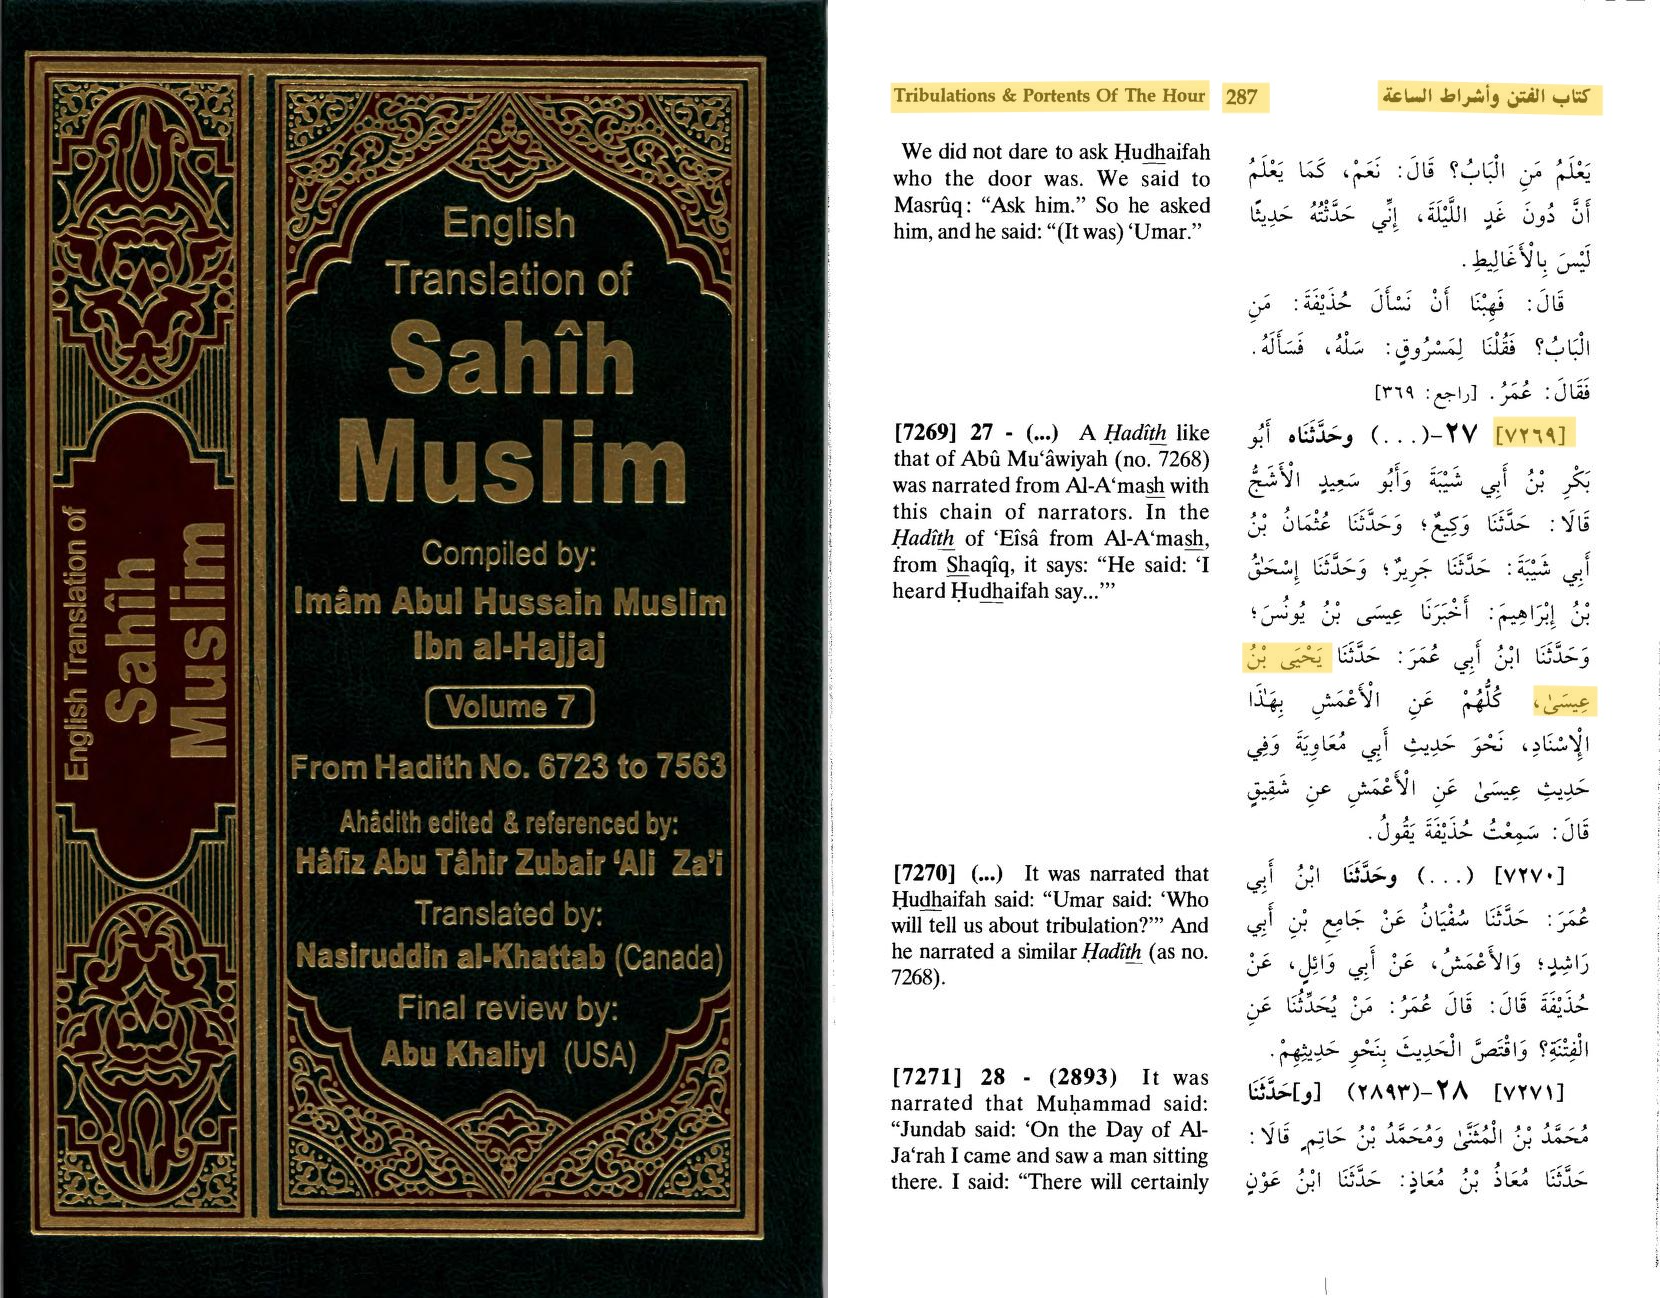 English Translation of
Sahîh
Muslim
English
Translation of
Sahîh
Muslim
Compiled by:
Imâm Abul Hussain Muslim
Ibn al-Hajjaj
Volume 7
From Hadith No. 6723 to 7563
Ahâdith edited & referenced by:
Hâfiz Abu Tâhir Zubair ‘Ali Za’i
Translated by:
Nasiruddin al-Khattab (Canada)
Final review by:
Abu Khaliyl (USA)
Tribulations & Portents Of The Hour 287 كتاب الفتن وأشراط الساعة
We did not dare to ask Ḥudhaifah
who the door was. We said to
Masrûq: “Ask him.” So he asked
him, and he said: “(It was) ‘Umar.”
[7269] 27 - (...) A Ḥadîth like
that of Abû Mu‘âwiyah (no. 7268)
was narrated from Al-A‘mash with
this chain of narrators. In the
Ḥadîth of ‘Eîsâ from Al-A‘mash,
from Shaqîq, it says: “He said: ‘I
heard Ḥudhaifah say...’”
[7270] (...) It was narrated that
Ḥudhaifah said: “Umar said: ‘Who
will tell us about tribulation?’” And
he narrated a similar Ḥadîth (as no.
7268).
[7271] 28 - (2893) It was
narrated that Muḥammad said:
“Jundab said: ‘On the Day of Al-
Ja‘rah I came and saw a man sitting
there. I said: “There will certainly
يَعْلَمُ مَنِ الْبَابُ؟ قَالَ: نَعَمْ، كَمَا يَعْلَمُ
أَنَّ دُونَ غَدٍ اللَّيْلَةَ، إِنِّي حَدَّثْتُهُ حَدِيثًا
لَيْسَ بِالْأَغَالِيطِ.
قَالَ: فَهِبْنَا أَنْ نَسْأَلَ حُذَيْفَةَ: مَنِ
الْبَابُ؟ فَقُلْنَا لِمَسْرُوقٍ: سَلْهُ، فَسَأَلَهُ.
فَقَالَ: عُمَرُ. [راجع: ٣٦٩]
[٧٢٦٩] ٢٧-(...) وحَدَّثَنَاه أَبُو
بَكْرِ بْنُ أَبِي شَيْبَةَ وَأَبُو سَعِيدٍ الْأَشَجُّ
قَالَا: حَدَّثَنَا وَكِيعٌ؛ وَحَدَّثَنَا عُثْمَانُ بْنُ
أَبِي شَيْبَةَ: حَدَّثَنَا جَرِيرٌ؛ وَحَدَّثَنَا إِسْحَٰقُ
بْنُ إِبْرَاهِيمَ: أَخْبَرَنَا عِيسَى بْنُ يُونُسَ؛
وَحَدَّثَنَا ابْنُ أَبِي عُمَرَ: حَدَّثَنَا يَحْيَى بْنُ
عِيسَىٰ، كُلُّهُمْ عَنِ الْأَعْمَشِ بِهَٰذَا
الْإِسْنَادِ، نَحْوَ حَدِيثِ أَبِي مُعَاوِيَةَ وَفِي
حَدِيثِ عِيسَىٰ عَنِ الْأَعْمَشِ عن شَقِيقٍ
قَالَ: سَمِعْتُ حُذَيْفَةَ يَقُولُ.
[٧٢٧٠] (...) وحَدَّثَنَا ابْنُ أَبِي
عُمَرَ: حَدَّثَنَا سُفْيَانُ عَنْ جَامِعِ بْنِ أَبِي
رَاشِدٍ؛ وَالْأَعْمَشُ، عَنْ أَبِي وَائِلٍ، عَنْ
حُذَيْفَةَ قَالَ: قَالَ عُمَرُ: مَنْ يُحَدِّثُنَا عَنِ
الْفِتْنَةِ؟ وَاقْتَصَّ الْحَدِيثَ بِنَحْوِ حَدِيثِهِمْ.
[٧٢٧١] ٢٨-(٢٨٩٣) [و]حَدَّثَنَا
مُحَمَّدُ بْنُ الْمُثَنَّىٰ وَمُحَمَّدُ بْنُ حَاتِمٍ قَالَا:
حَدَّثَنَا مُعَاذُ بْنُ مُعَاذٍ: حَدَّثَنَا ابْنُ عَوْنٍ